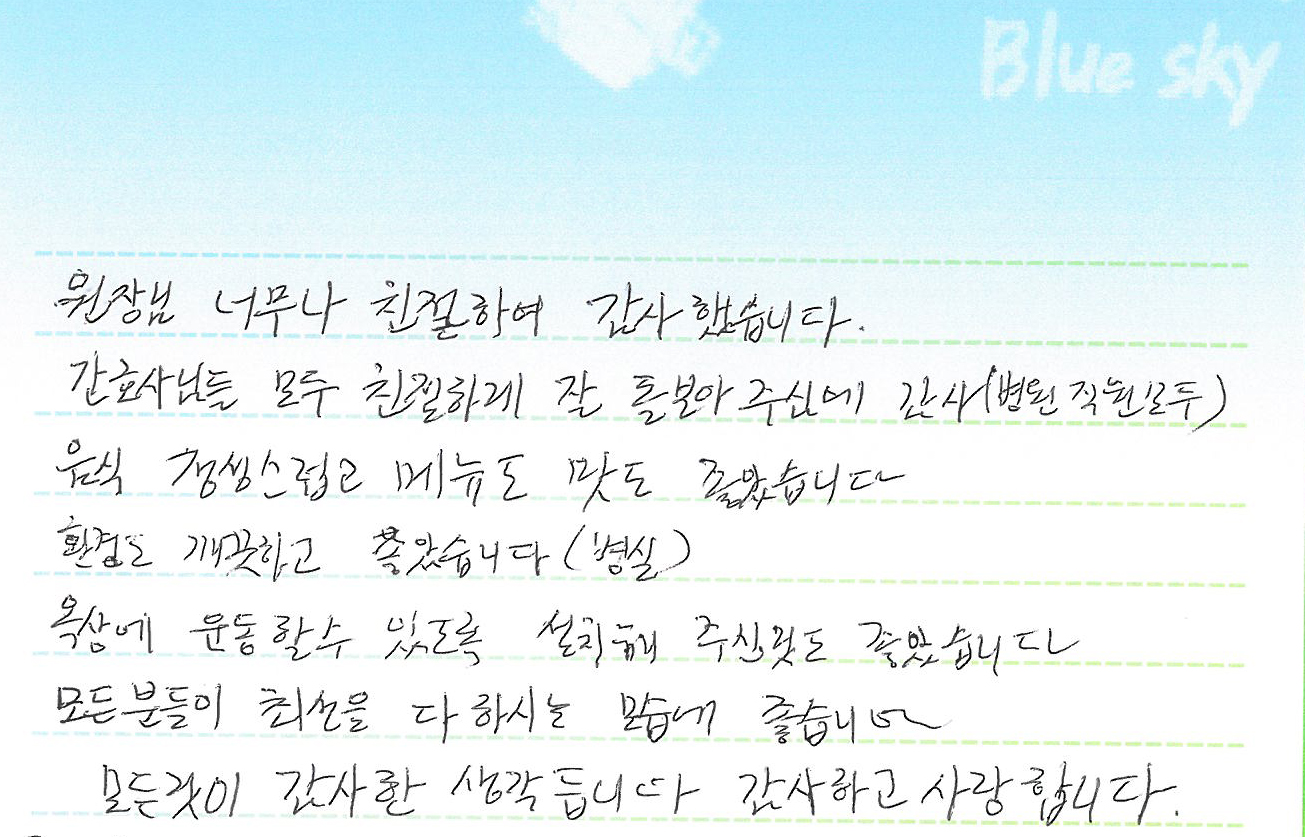 Blue sky
원장님 너무나 친절하여 감사했습니다.
간호사님들 모두 친절하게 잘 돌보아 주신에 감사(병원 직원모두)
음식 정성스럽고 메뉴도 맛도 좋았습니다
환경도 깨끗하고 좋았습니다(병실)
옥상에 운동할수 있도록 설치해 주신것도 좋았습니다
모든분들이 최선을 다하시는 모습에 좋습니다
모든것이 감사한 생각듭니다 감사하고 사랑합니다.